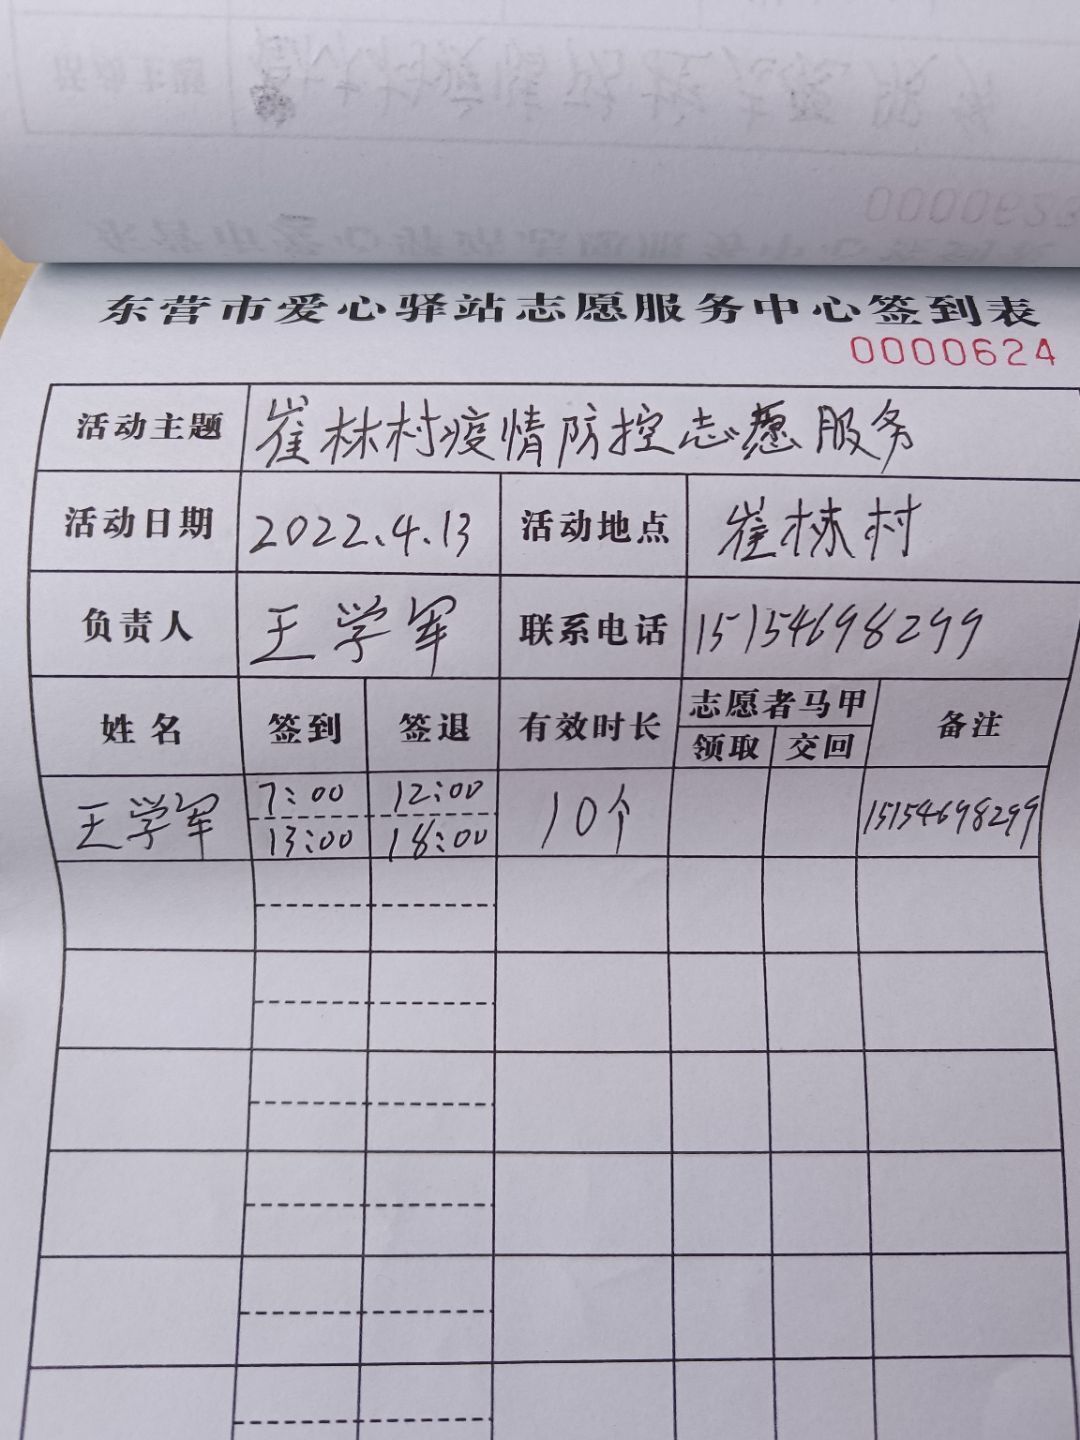 0000623
东营市爱心驿站志愿服务中心签到表
0000624
活动主题 崔林村疫情防控志愿服务
活动日期 2022.4.13 活动地点 崔林村
负责人 王学军 联系电话 15154698299
姓名 签到 签退 有效时长 志愿者马甲 备注
领取 交回
王学军 7:00 12:00 10个 15154698299
13:00 18:00